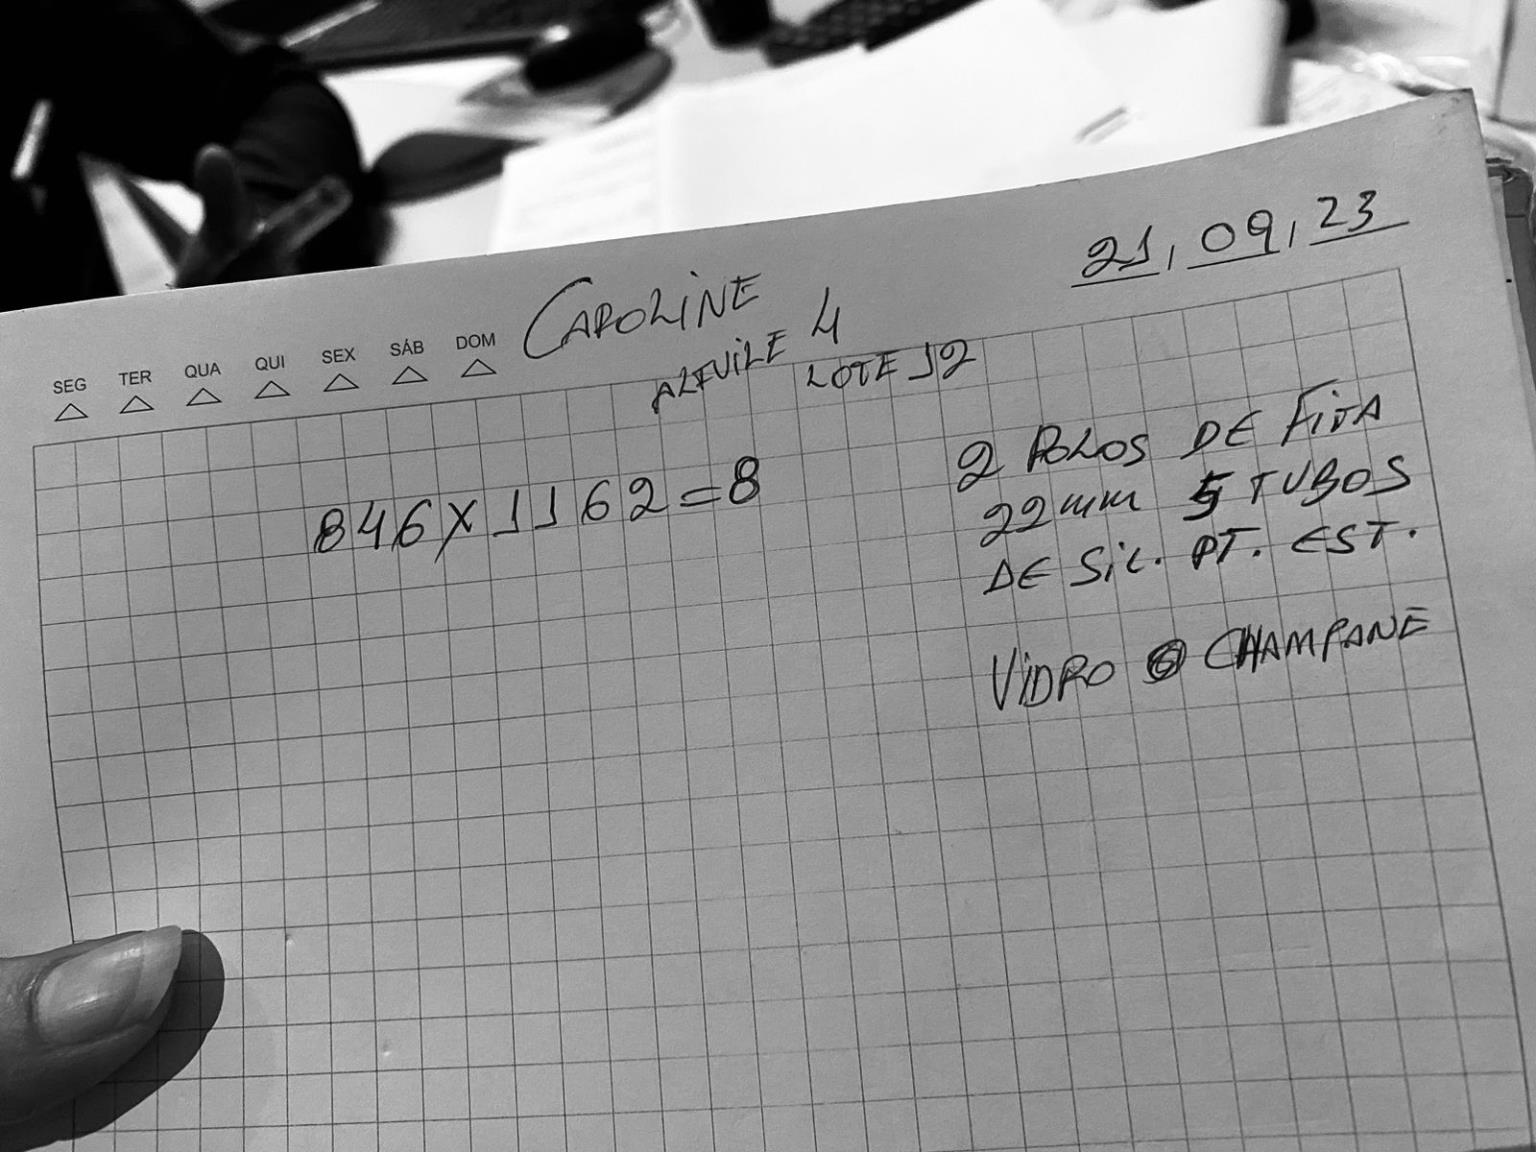 21, 09, 23
CAROLINE
SEG TER QUA QUI SEX SÁB DOM
4
LOTE 12
846 X 1162 = 8
2 ROLOS DE FITA
22mm 5 TUBOS
DE SiL. PT. EST.
ViDRO CHAMPANE